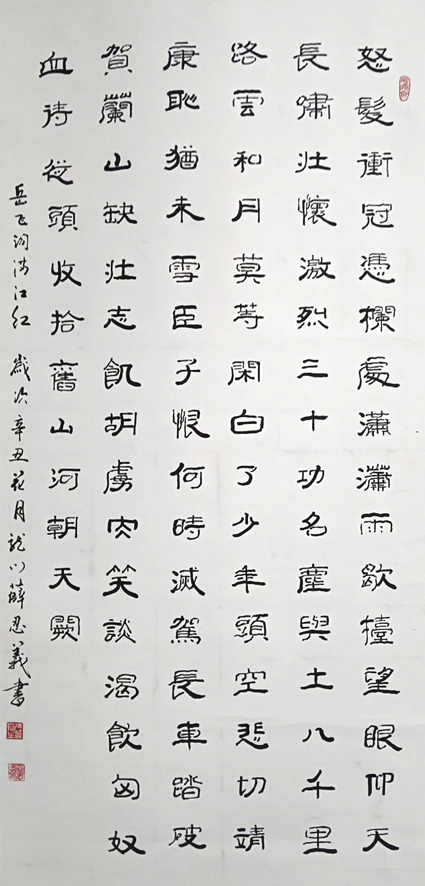 怒髮衝冠憑欄處瀟瀟雨歇擡望眼仰天
長嘯壯懷激烈三十功名塵與土八千里
路雲和月莫等閑白了少年頭空悲切靖
康恥猶未雪臣子恨何時滅駕長車踏破
賀蘭山缺壯志飢胡虜肉笑談渴飲匈奴
血待從頭收拾舊山河朝天闕
岳飞詞滿江紅 歲次辛丑花月龍川薛忍義書